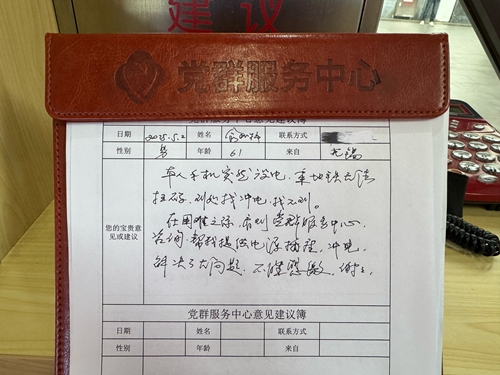 建议
党群服务中心
党群服务中心意见建议簿
日期 2025.5.2 姓名 联系方式
性别 男 年龄 61 来自 无锡
您的宝贵意见或建议
本人手机突然没电，乘地铁无法
扫码，到处找冲电，找不到。
在困难之际，来到党群服务中心
咨询，帮我提供电源插座，冲电，
解决了大问题，不胜感激，谢谢。
党群服务中心意见建议簿
日期 姓名 联系方式
性别 年龄 来自